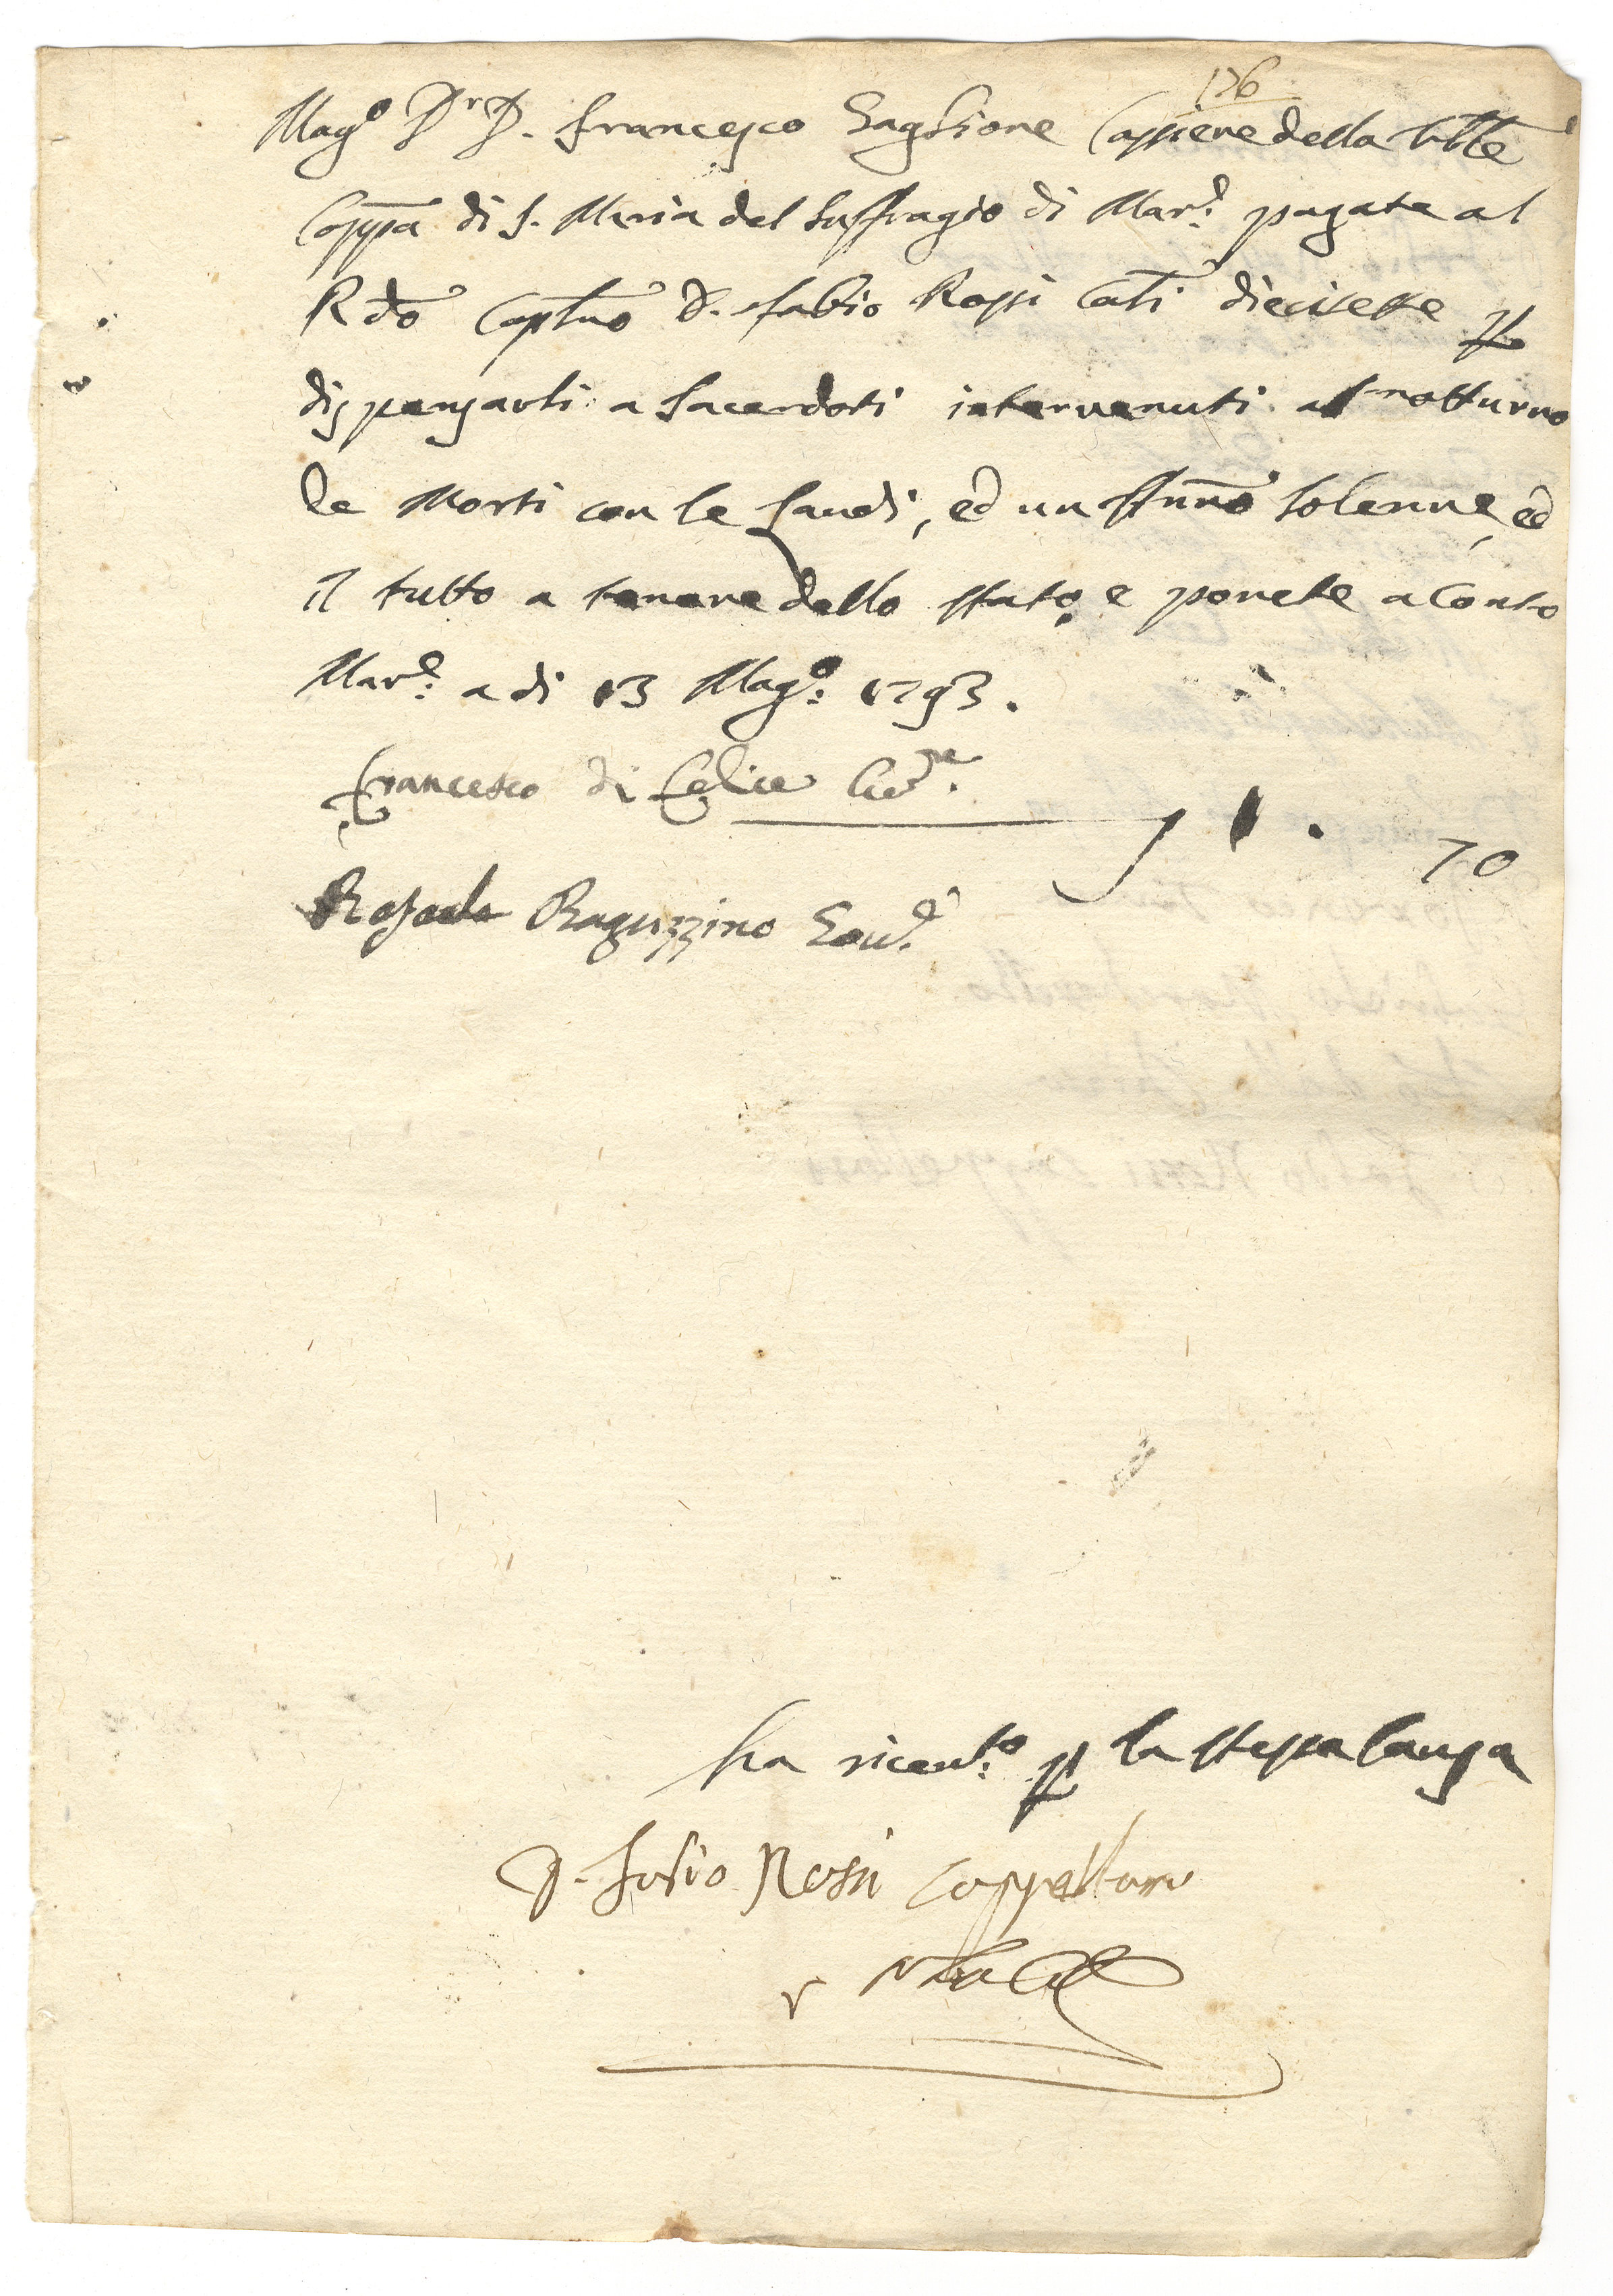 176
Mag.º D.r D. Francesco Gaglione Cassiere della
Cappa di S. Maria del Suffragio di Mar.e pagate al
Rdo Caplno D. Fabio Rossi Cati diecisette p
dispenzarli a Sacerdoti intervenuti al notturno
de Morti con le Laudi, ed un solenne, ed
il tutto a tenore dello stato, e ponete a conto
Mar.e a di 13 Mag.º: 1793.
Francesco di Felice
1. 70
Rafaele Raguzzino Gov.e
ha ricevto: p la stessa causa
D. Fabio Rossi Cappellano